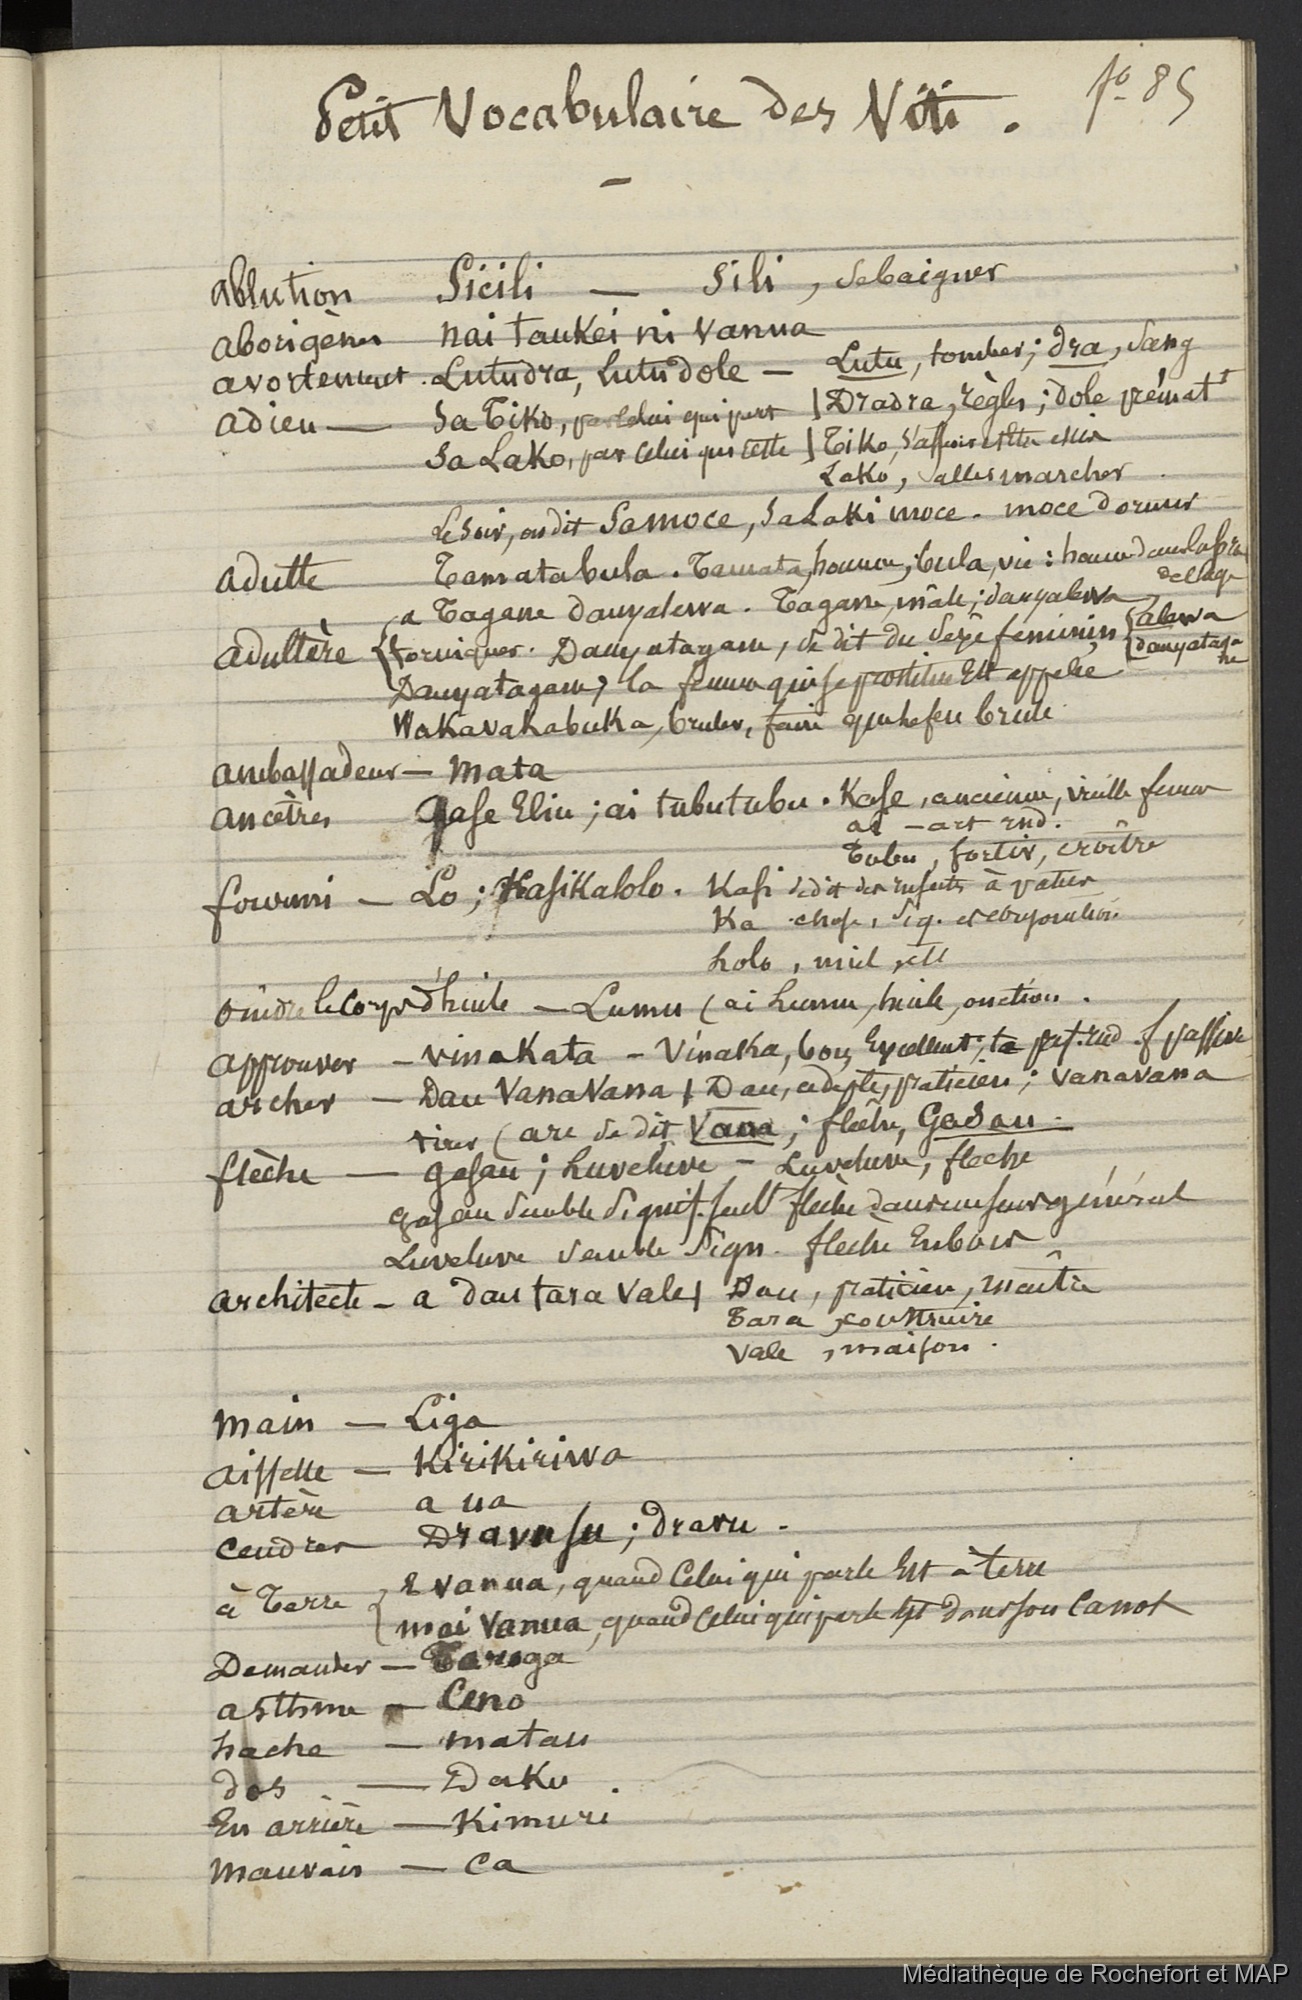 fo 85
Petit Vocabulaire des Viti.
ablution Sicili — Sili, se baigner
aborigènes nai taukei ni vanua
avortement. Lutudra, Lutudole — Lutu, tomber; dra, sang
adieu — Sa Tiko, par celui qui part | Dradra, règles; dole prématt
Sa Lako, par celui qui reste | Tiko, s'asseoir
Lako, aller marcher
Le soir, on dit Samoce, Sa Laki moce. moce dormir
adulte Tamatabula. Tamata, homme; bula, vie: homme dans la
de l'age
a Tagane dauyalewa. Tagane, mâle; dauyalewa
adultère forniquer. Dauyatagane, se dit du sexe feminin alewa
dauyatagane
Dauyatagane, la femme qui se prostitue est appelée
Wakavakabuka, bruler, faire que le feu brule
ambassadeur — mata
ancêtres Qase Eliu; ai tubutubu. Kase, ancienne, vieille femme
ai — art ind.
Tubu, sortir, croître
fourmi — Lo; Kasikalolo. Kasi se dit des enfants à pattes
Ka chose, sig. et composition
holo, miel, ett
oindre le corps d'huile — Lumu (ai lumu, huile, onction.
approuver — vinakata — Vinaka, bon, Excellent; ta passive
archer — Dau Vanavana | Dau, adepte, praticien; vanavana
tirer (arc se dit Vana; flèche, Gasau.
flèche — gasau; Luveluve — Luveluve, fleche
gasau semble signif. seult flèche dans un sens général
Luveluve semble sign. flèche En bois
architecte — a dau tara vale | Dau, paticien, maître
Tara, construire
vale, maison.
main — Liga
aisselle — Kirikiriwa
artère a ua
cendres Dravusu; dravu.
à Terre E vanua, quand celui qui parle Est à terre
mai Vanua, quand celui qui parle Est dans son canot
Demander — Taroga
asthme — Ceno
hache — matau
dos — Daku.
En arrière — Kimuri
mauvais — Ca
Médiathèque de Rochefort et MAP